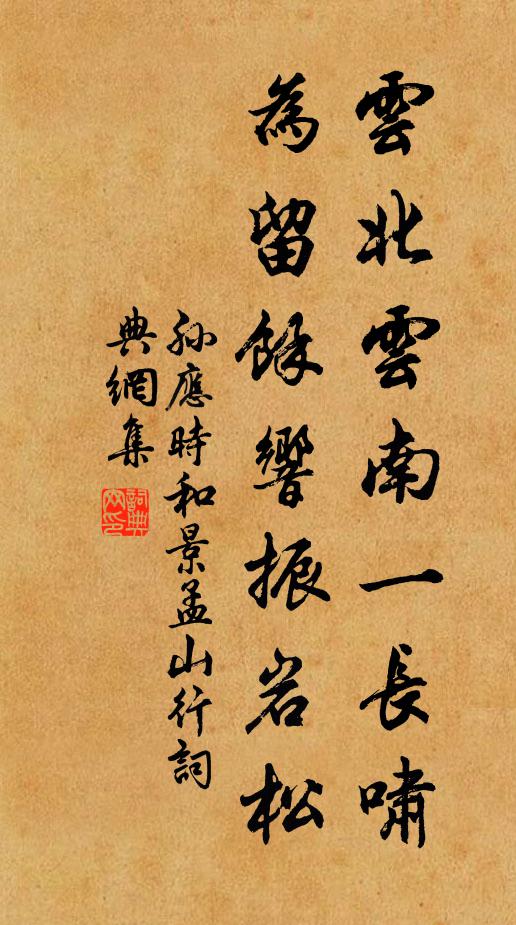 雲北雲南一長嘯
為留餘響振岩松
孫應時和景孟山行詞
典網集
詞典網印